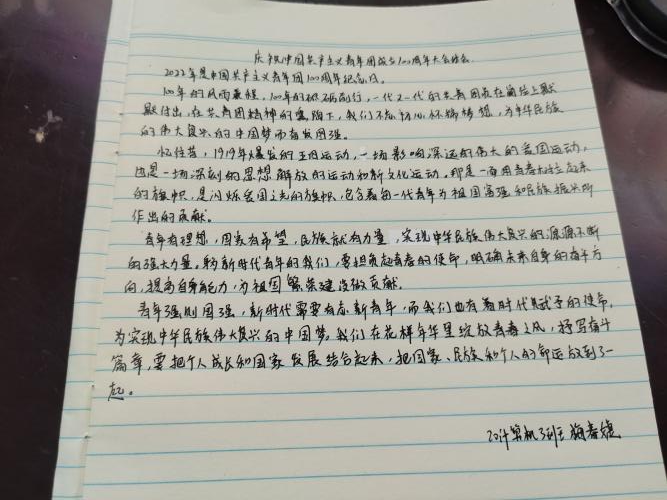 庆祝中国共产主义青年团成立100周年大会体会
2022年是中国共产主义青年团100周年纪念日。
100年的风雨兼程，100年的砥砺前行，一代又一代的共青团员在岗位上默
默付出，在共青团精神的熏陶下，我们不忘初心怀揣梦想，为中华民族
的伟大复兴的中国梦而奋发图强。
忆往昔，1919年爆发的五四运动，一场影响深远的伟大的爱国运动，
也是一场深刻的思想解放的运动和新文化运动。那是一面用青春树立起来
的旗帜，是闪烁爱国之光的旗帜，包含着每一代青年为祖国富强和民族振兴所
作出的贡献。
青年有理想，国家有希望，民族就有力量，实现中华民族伟大复兴的源源不断
的强大力量。身为新时代青年的我们，要担负起青春的使命，明确未来自身的奋斗方
向，提高自身能力，为祖国繁荣建设做贡献。
青年强则国强，新时代需要有志新青年，而我们也有着时代赋予的使命，
为实现中华民族伟大复兴的中国梦。我们在花样年华里绽放青春之风，抒写奋斗
篇章，要把个人成长和国家发展结合起来，把国家、民族和个人的命运放到了一
起。
20计算机3班 梅春